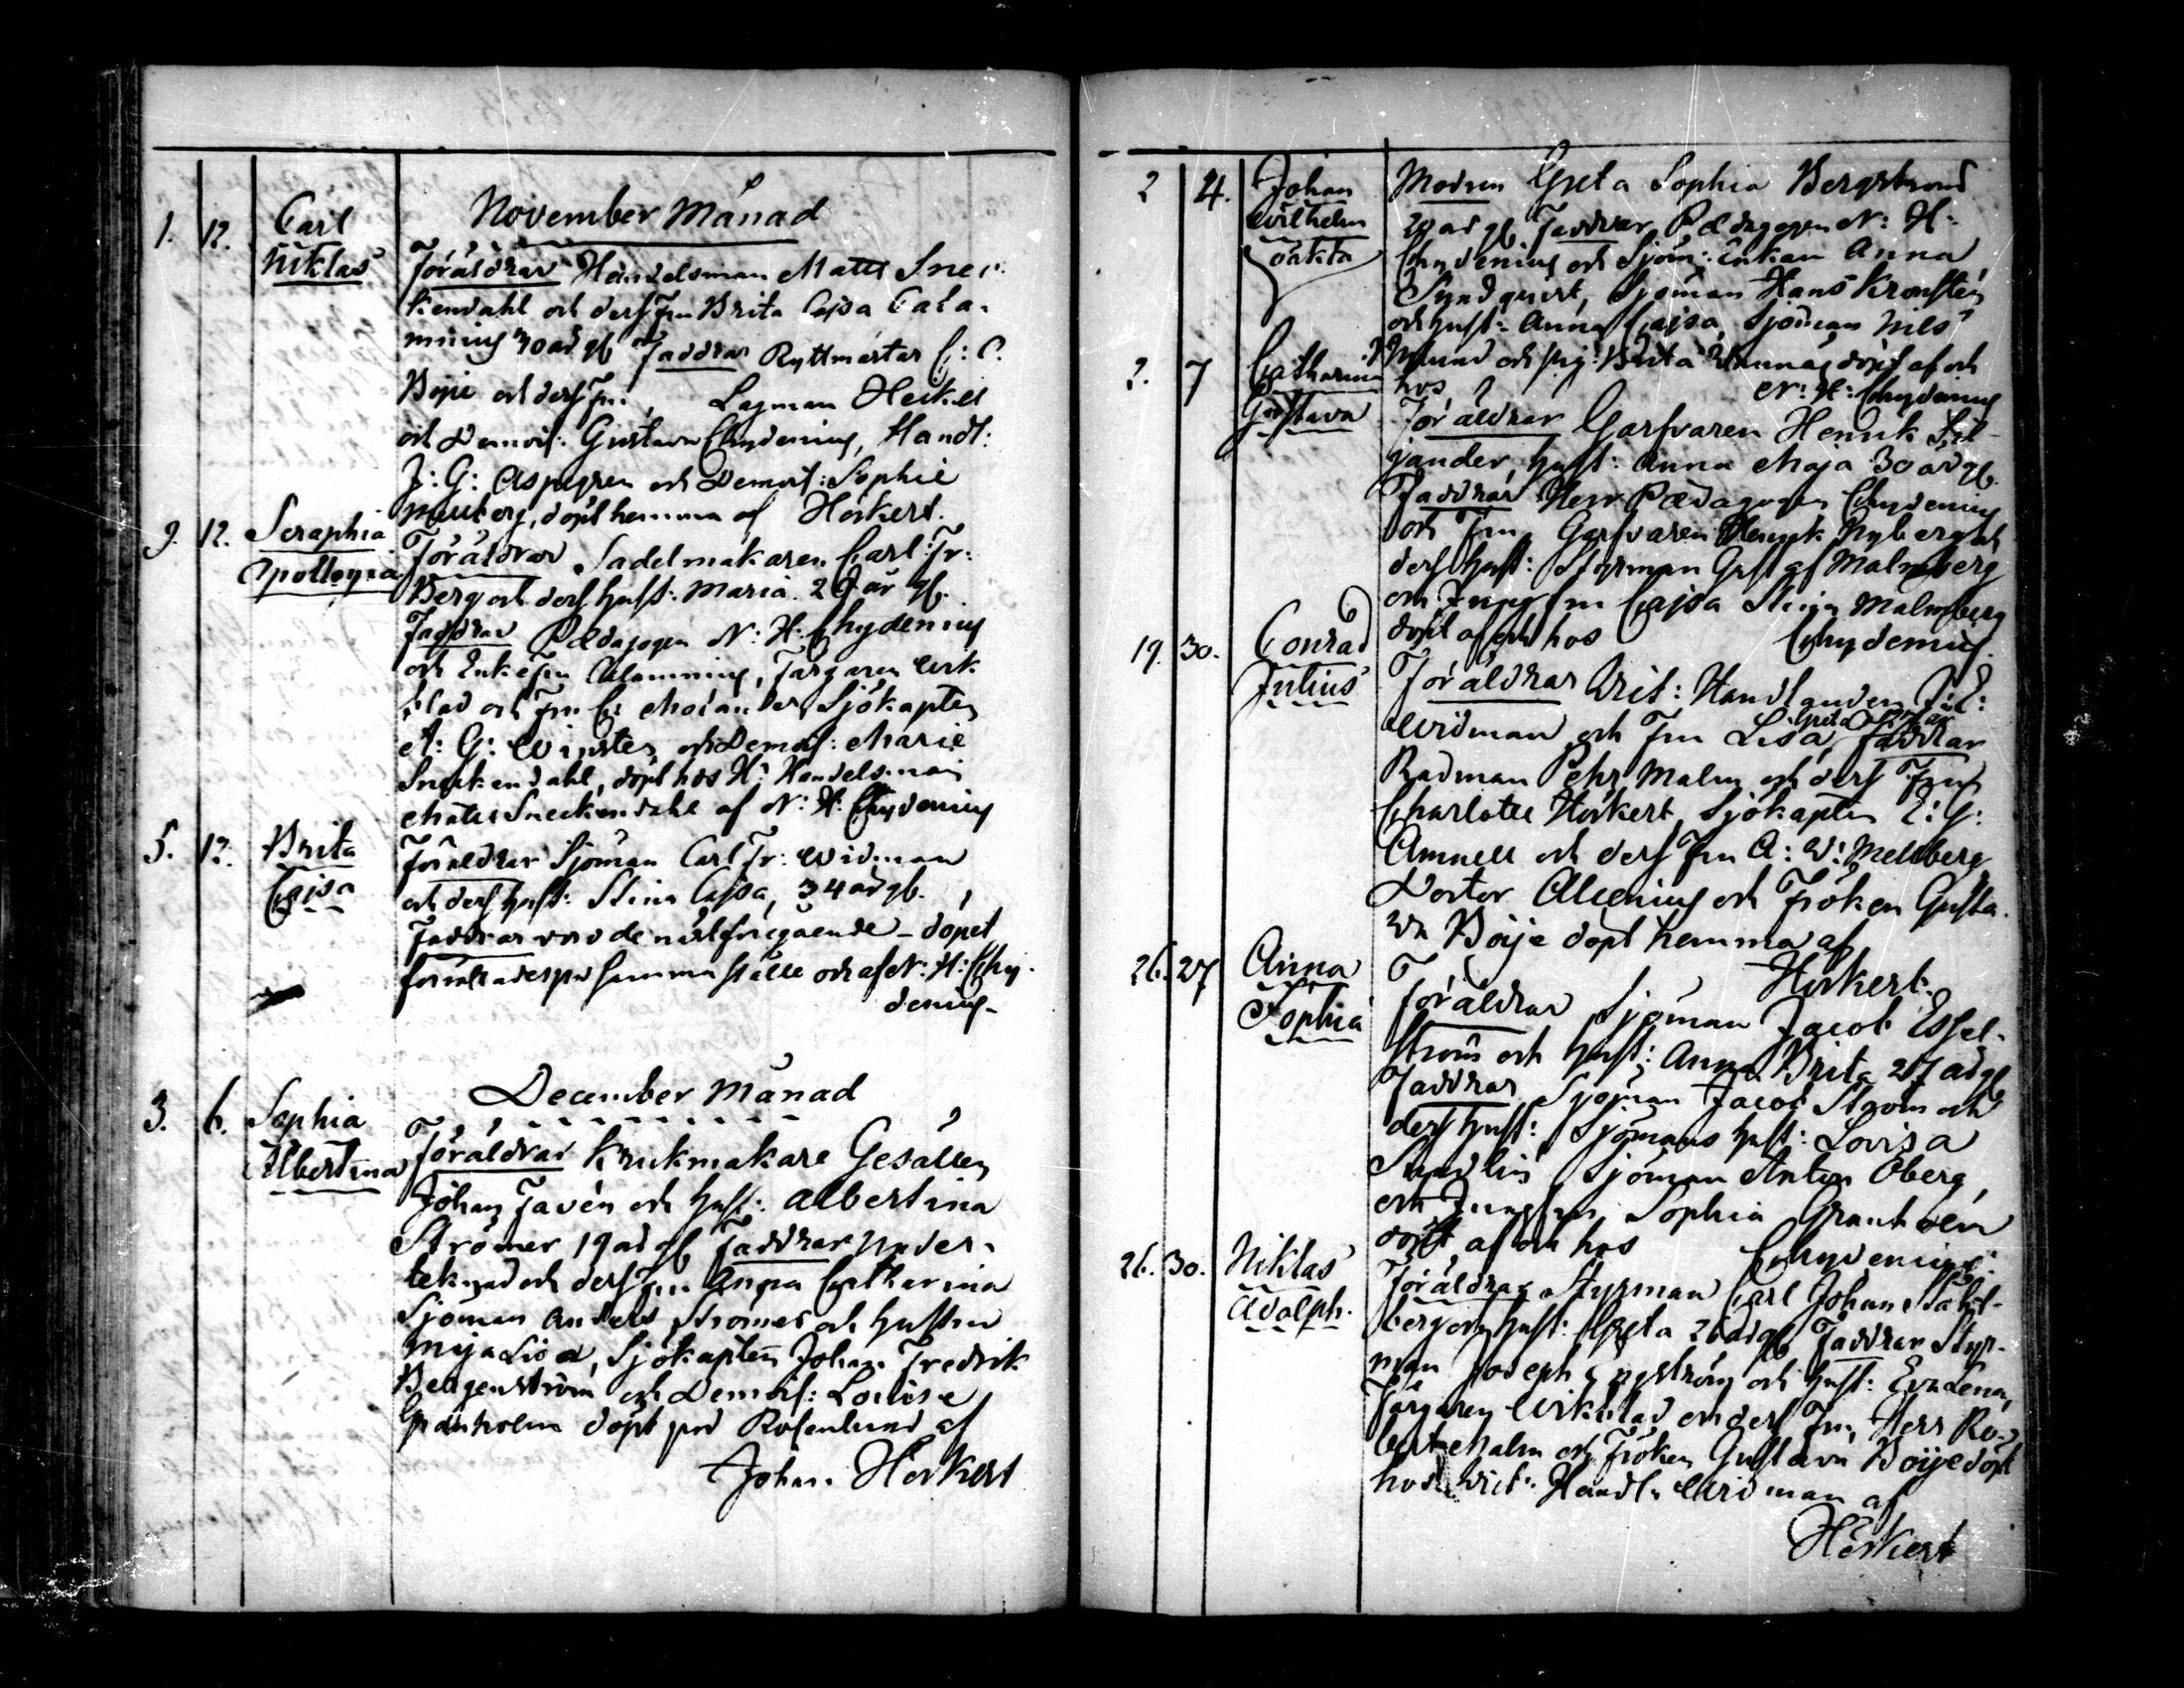 November Månad
1. 12. Carl Niklas
Föräldrar Handelsman Matts Snec-
kendahl och dess Fru Brita Cajsa Cala-
mnius 30 år gl Faddrar Ryttmästar C: C.
Boje och dess Fru, Lagman Heikel
och Demois: Gustava Chydenius, Handl:
J: G: Aspegren och Demois: Sophie
döpt hemma af Hörkert.
9. 12. Seraphia Apollonia
Föräldrar Sadelmakaren Carl Fr:
Berg och dess Hust: Maria 26 år gl.
Faddrar Pædagogen N: H: Chydenius
och Enkefru Calamnius, Färgaren Wirk
blad och Fru C: Morander, Sjökapten
A: G: Winsten och Demois: Marie
Sneckendahl, döpt hos H: Handelsman
Matts Sneckendahl af N: H: Chydenius
5. 12. Brita Cajsa
Föräldrar Sjöman Carl Fr: Widman
och dess Hust: Stina Cajsa, 34 år gl.
Faddrar voro de näst föregående - dopet
förrättades på samma ställe och af N: H: Chy-
denius
December Månad
3. 6. Sophia Albertina
Föräldrar Krukmakare Gesällen
Johan Favén och Hust: Albertina
Strömer 19 år gl Faddrar Under-
teknad och dess Fru Anna Catharina
Sjöman Anders Strömer och Hustru
Maja Lisa, Sjökapten Johan Fredrik
Bergenström och Demois: Louise
Granholm döpt på Rosenlund af
Johan Hörkert
2 4. Johan Wilhelm oäkta
Modren Greta Sophia Bergstrand
29 år gl Faddrar Pædagogen N: H:
Chydenius och Sjöm: Enkan Anna
Sundqvist, Sjöman Hans Kronsten
och Hust: Anna Cajsa, Sjöman Nils
och Pig: Brita döpt af och
hos N: H: Chydenius
2. 7 Catharina Gustava
Föräldrar Garfvaren Henrik Sil-
jander, Hust: Anna Maja 30 år gl.
Faddrar Herr Pædagogen Chydenius
och Fru, Garfvaren Henrik Nyberg och
dess Hust: Styrman Gustaf Malmberg
och Jungfru Cajsa Stina Malmberg
döpt af och hos Chydenius.
19. 30. Conrad Julius
Föräldrar Vict: Handlanden J: E:
Widman och Fru Lisa Greta Faddrar
Rådman Pehr Malm och dess Fru
Charlotte Hörkert, Sjökapten E: G:
Amnell och dess Fru A: W: Mellberg
Doctor Alcenius och Fröken Gusta-
va Boije döpt hemma af
Hörkert.
26. 27 Anna Sophia
Föräldrar Sjöman Jacob Essel-
ström och Hust: Anna Brita 27 år gl
Faddrar Sjöman Jacob Ström och
dess Hust: Sjömans Hust: Lovisa
Sundlin Sjöman Anton Öberg,
och Jungfrun Sophia Granholm
döpt af och hos Chydenius.
26. 30. Niklas Adolph.
Föräldrar Styrman Carl Johan Stahl-
berg och Hust: Greta 26 år gl Faddrar Styr-
man Joseph Engström och Hust: Eva Lena,
Färgaren Wirkblad och dess Fru, Herr Ro-
bert Malm och Fröken Gustava Boije döpt
hos Vict: Handl: Widman af
Hörkert